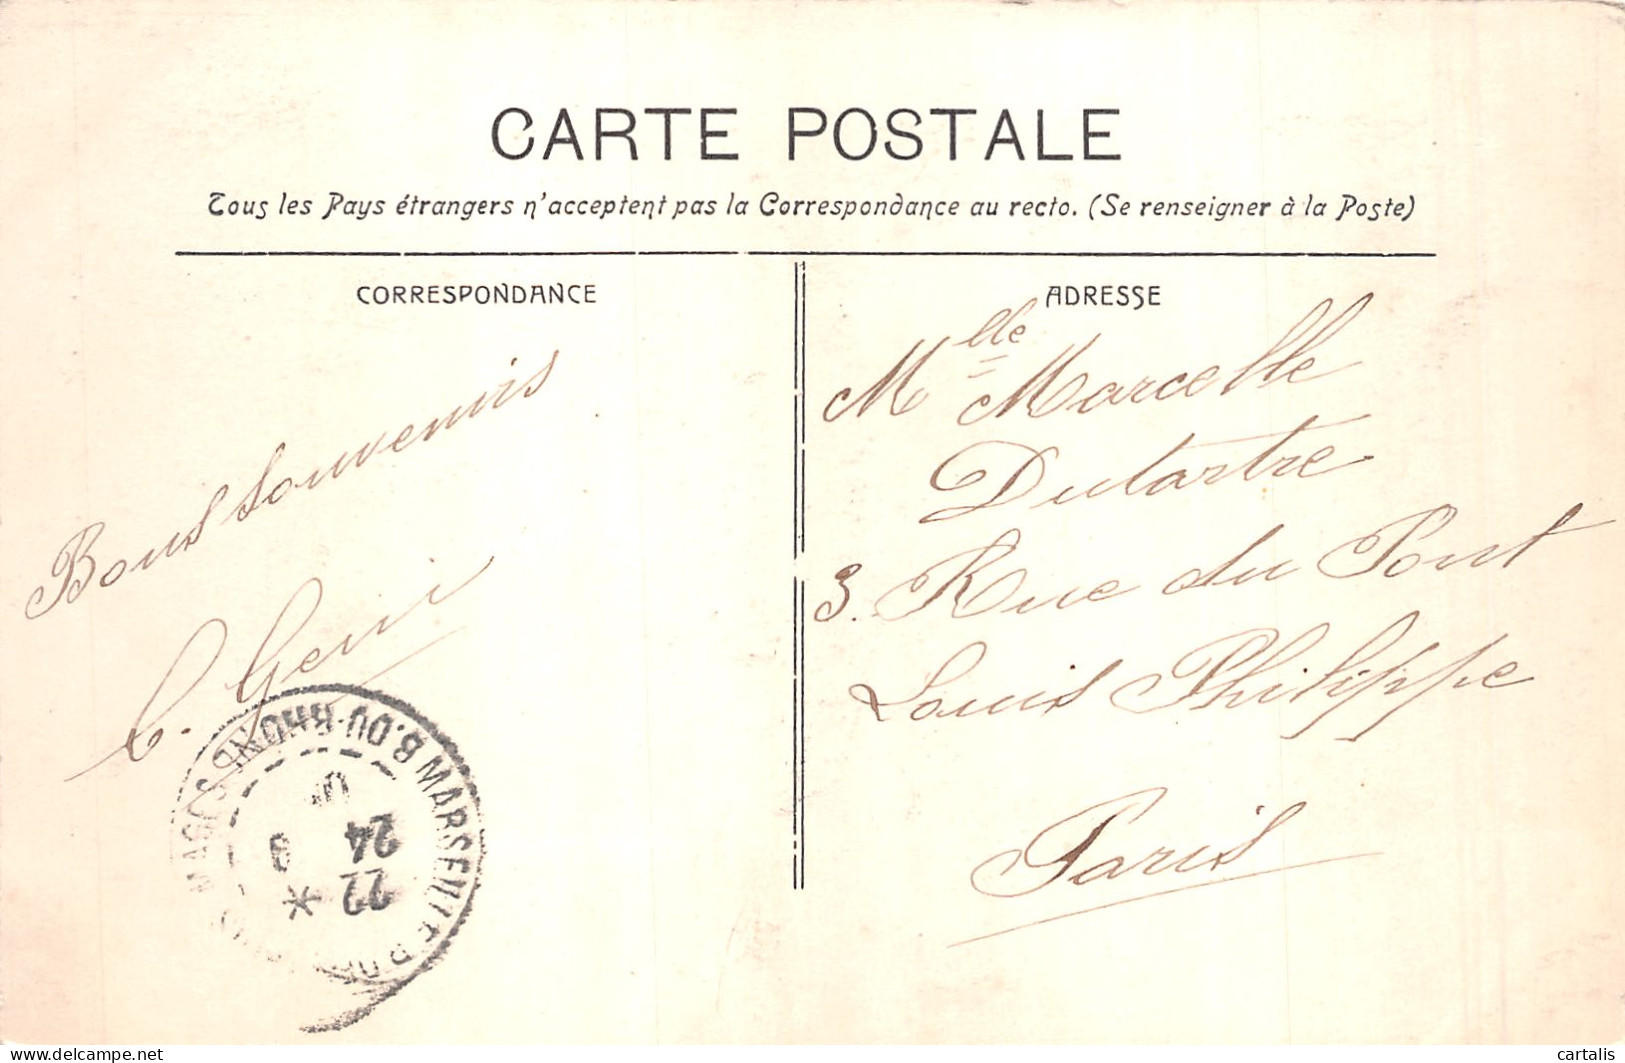 CARTE POSTALE
Tous les Pays étrangers n'acceptent pas la Correspondance au recto. (Se renseigner à la Poste)
CORRESPONDANCE
Bons souvenirs
ADRESSE
Mlle Marcelle
Dutartre
3. Rue du Pont
Louis Philippe
Paris
MARSEILLE
B. DU-RHONE
22
24
delcampe.net
cartalis